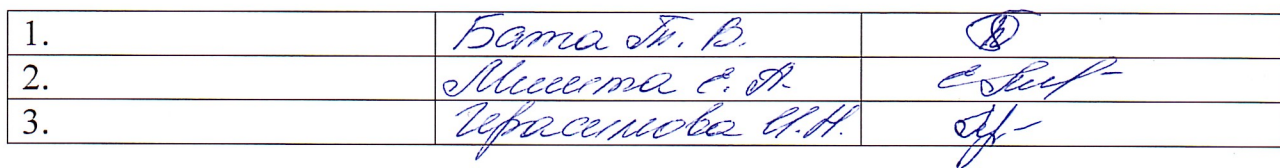 1. Бата Т. В.
2. Е. А.
3. Герасимова И.Н.